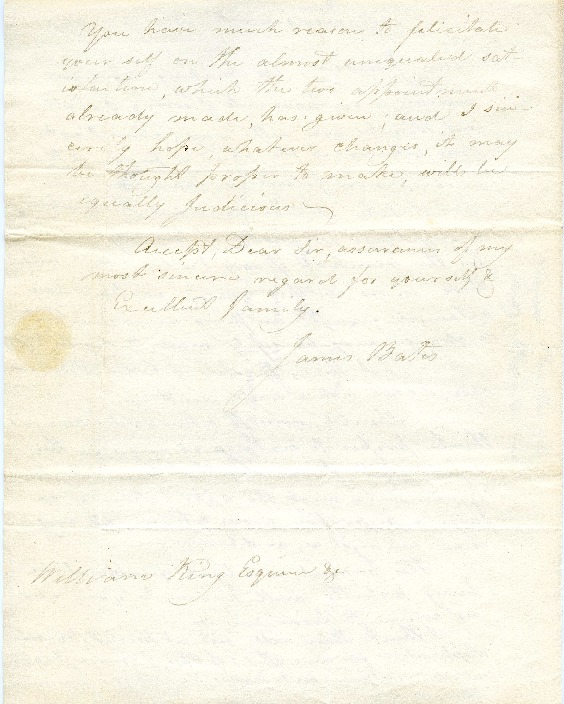 You have much reason to felicitate
your self on the almost unequaled sat-
isfaction, which the two appointments
already made, has given; and I sin-
cerely hope, whatever changes, it may
be thought proper to make, will be
equally Judicious
Accept, Dear Sir, assurances of my
most sincere regard for yourself &
Excellent family.
James Bates
William King Esquire &c